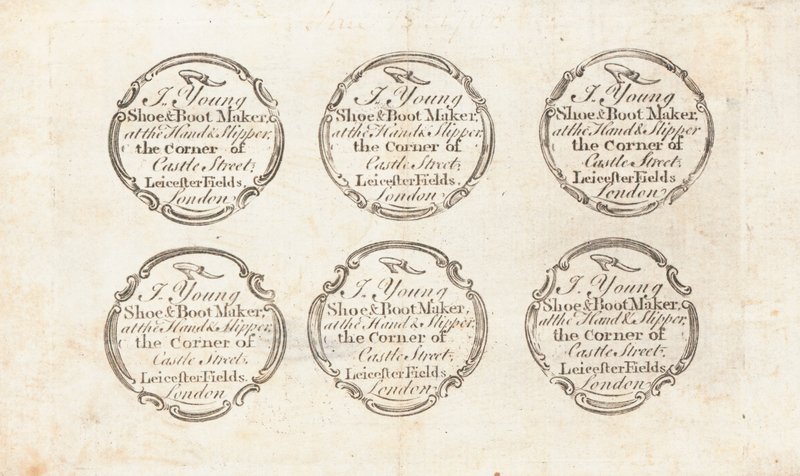 J. Young
Shoe & Boot Maker,
at the Hand & Slipper,
the Corner of
Castle Street;
Leiceſter Fields,
London
J. Young
Shoe & Boot Maker,
at the Hand & Slipper,
the Corner of
Castle Street;
Leiceſter Fields,
London
J. Young
Shoe & Boot Maker,
at the Hand & Slipper
the Corner of
Castle Street;
Leiceſter Fields
London
J. Young
Shoe & Boot Maker,
at the Hand & Slipper,
the Corner of
Castle Street;
Leiceſter Fields.
London
J. Young
Shoe & Boot Maker,
at the Hand & Slipper,
the Corner of
Castle Street;
Leiceſter Fields
London
J. Young
Shoe & Boot Maker,
at the Hand & Slipper,
the Corner of
Castle Street;
Leiceſter Fields
London